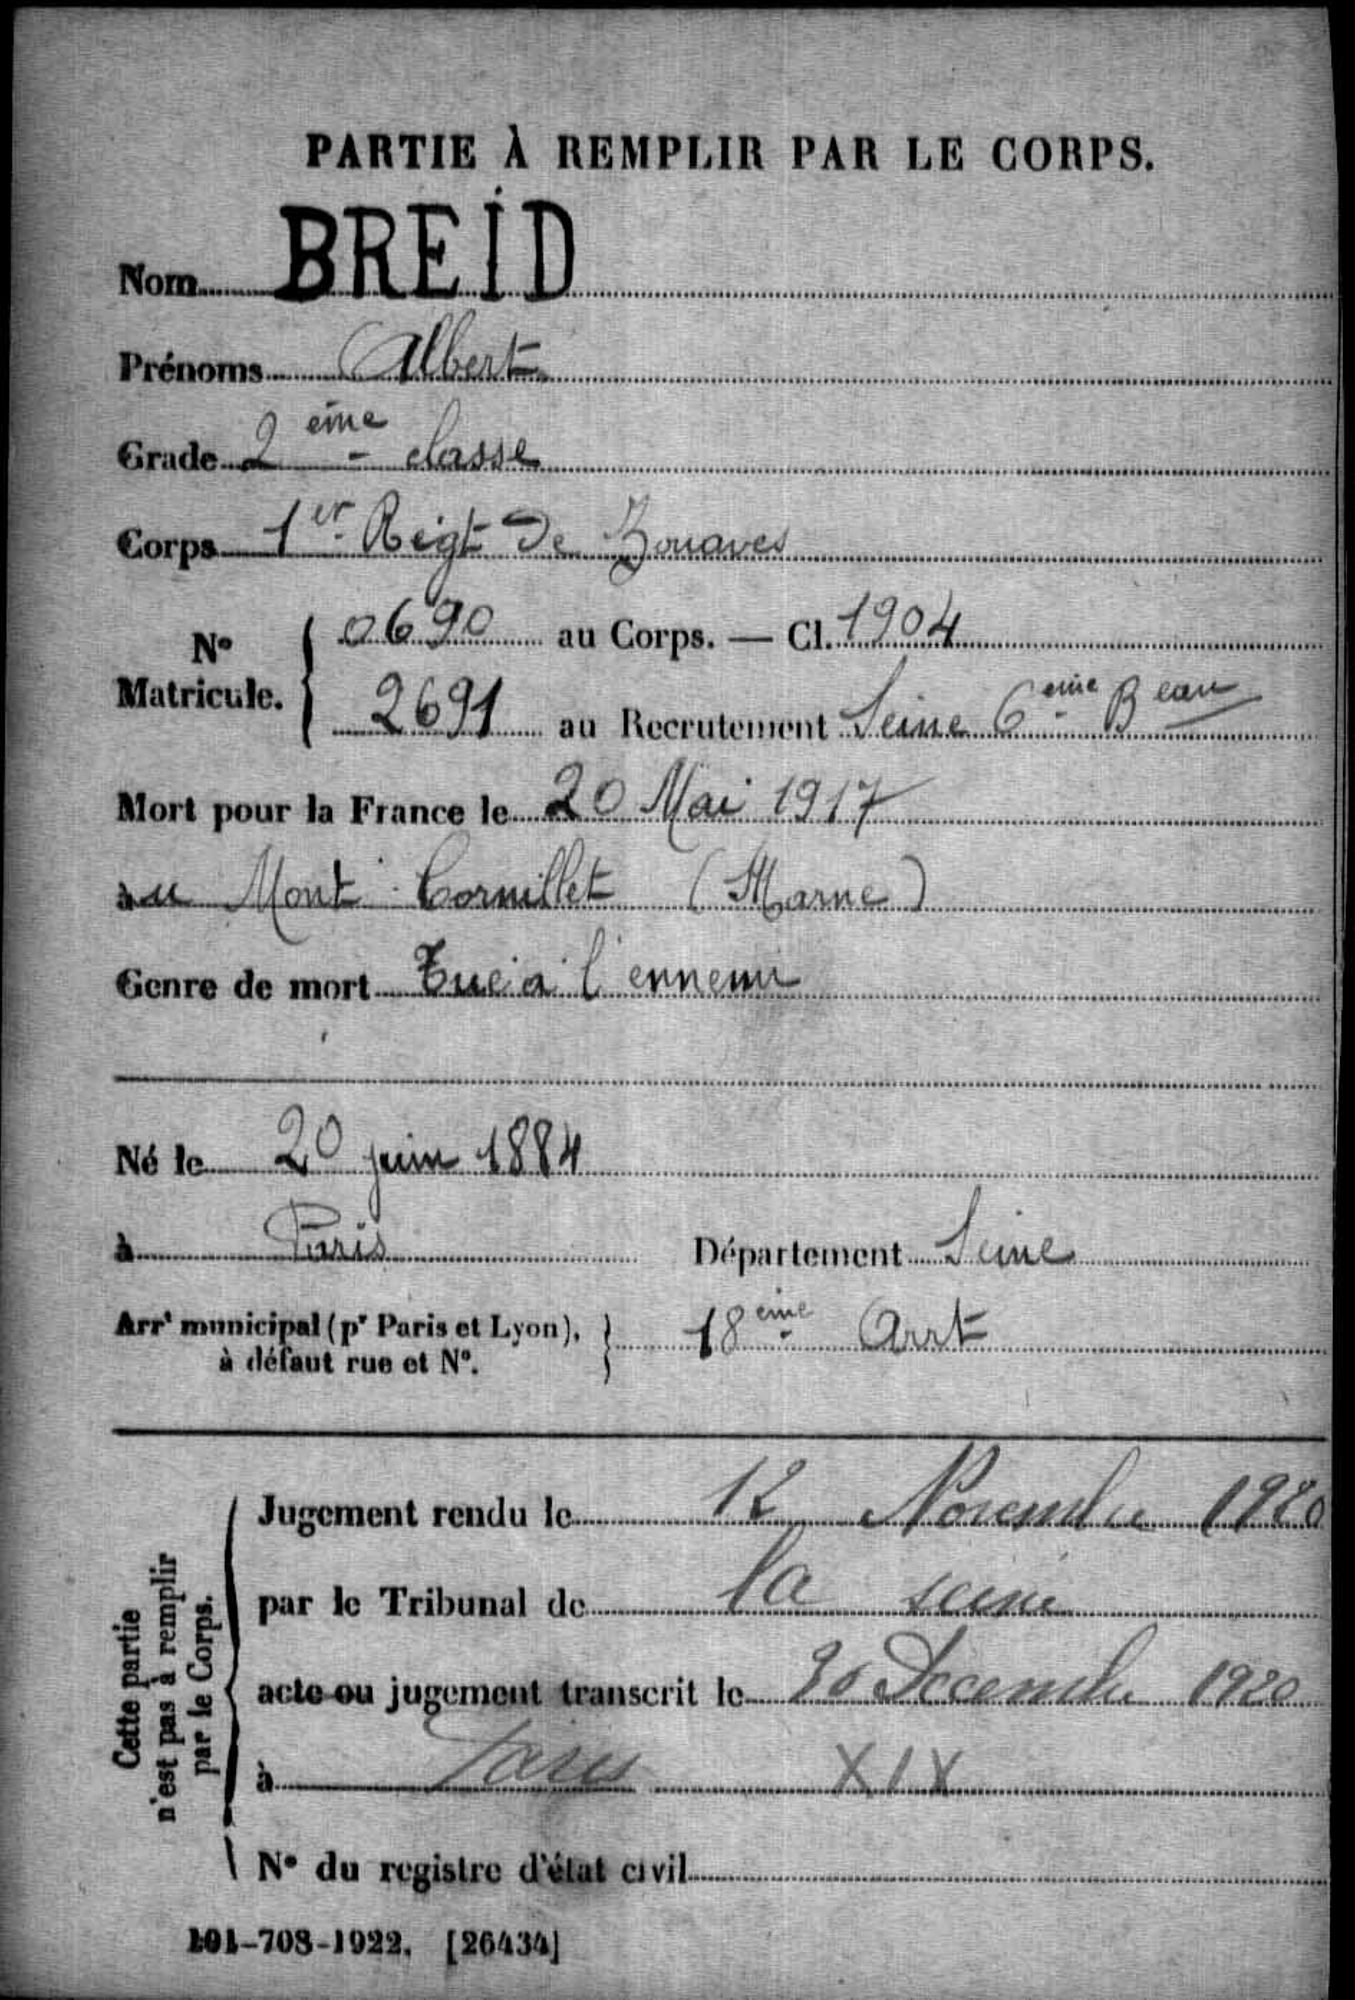 PARTIE À REMPLIR PAR LE CORPS.
Nom BREID
Prénoms Albert
Grade 2 ème classe
Corps 1er Régt de Zouaves
N° Matricule. { 0690 au Corps. — Cl. 1904
2691 au Recrutement Seine 6ème Beau
Mort pour la France le 20 Mai 1917
au Mont Cornillet (Marne)
Genre de mort Tué à l'ennemi
Né le 20 juin 1884
à Paris Département Seine
Arrt municipal (pr Paris et Lyon), à défaut rue et N°. } 18ème Arrt
Cette partie n'est pas à remplir par le Corps.
Jugement rendu le 12 Novembre 1920
par le Tribunal de la Seine
acte ou jugement transcrit le 30 Decembre 1920
à Paris XIX
N° du registre d'état civil
101-708-1922. [26434]